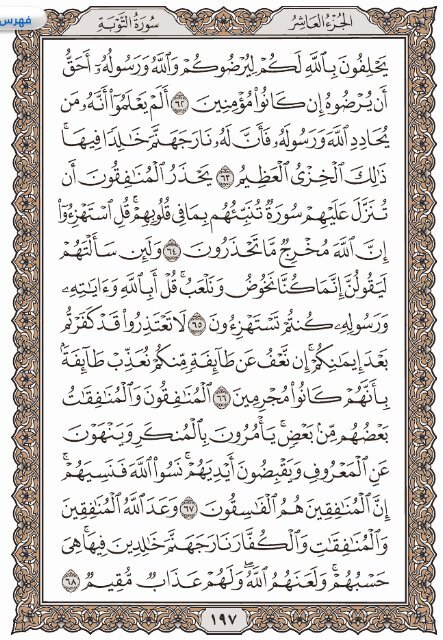 فهرس
الجزء العاشر
سورة التوبة
يَحْلِفُونَ بِٱللَّهِ لَكُمْ لِيُرْضُوكُمْ وَٱللَّهُ وَرَسُولُهُۥٓ أَحَقُّ
أَن يُرْضُوهُ إِن كَانُوا۟ مُؤْمِنِينَ ٦٢ أَلَمْ يَعْلَمُوٓا۟ أَنَّهُۥ مَن
يُحَادِدِ ٱللَّهَ وَرَسُولَهُۥ فَأَنَّ لَهُۥ نَارَ جَهَنَّمَ خَٰلِدًا فِيهَا ۚ
ذَٰلِكَ ٱلْخِزْىُ ٱلْعَظِيمُ ٦٣ يَحْذَرُ ٱلْمُنَٰفِقُونَ أَن
تُنَزَّلَ عَلَيْهِمْ سُورَةٌ تُنَبِّئُهُم بِمَا فِى قُلُوبِهِمْ ۚ قُلِ ٱسْتَهْزِءُوٓا۟
إِنَّ ٱللَّهَ مُخْرِجٌ مَّا تَحْذَرُونَ ٦٤ وَلَئِن سَأَلْتَهُمْ
لَيَقُولُنَّ إِنَّمَا كُنَّا نَخُوضُ وَنَلْعَبُ ۚ قُلْ أَبِٱللَّهِ وَءَايَٰتِهِۦ
وَرَسُولِهِۦ كُنتُمْ تَسْتَهْزِءُونَ ٦٥ لَا تَعْتَذِرُوا۟ قَدْ كَفَرْتُم
بَعْدَ إِيمَٰنِكُمْ ۚ إِن نَّعْفُ عَن طَآئِفَةٍ مِّنكُمْ نُعَذِّبْ طَآئِفَةًۢ
بِأَنَّهُمْ كَانُوا۟ مُجْرِمِينَ ٦٦ ٱلْمُنَٰفِقُونَ وَٱلْمُنَٰفِقَٰتُ
بَعْضُهُم مِّنۢ بَعْضٍ ۚ يَأْمُرُونَ بِٱلْمُنكَرِ وَيَنْهَوْنَ
عَنِ ٱلْمَعْرُوفِ وَيَقْبِضُونَ أَيْدِيَهُمْ ۚ نَسُوا۟ ٱللَّهَ فَنَسِيَهُمْ ۗ
إِنَّ ٱلْمُنَٰفِقِينَ هُمُ ٱلْفَٰسِقُونَ ٦٧ وَعَدَ ٱللَّهُ ٱلْمُنَٰفِقِينَ
وَٱلْمُنَٰفِقَٰتِ وَٱلْكُفَّارَ نَارَ جَهَنَّمَ خَٰلِدِينَ فِيهَا ۚ هِىَ
حَسْبُهُمْ ۚ وَلَعَنَهُمُ ٱللَّهُ ۖ وَلَهُمْ عَذَابٌ مُّقِيمٌ ٦٨
١٩٧